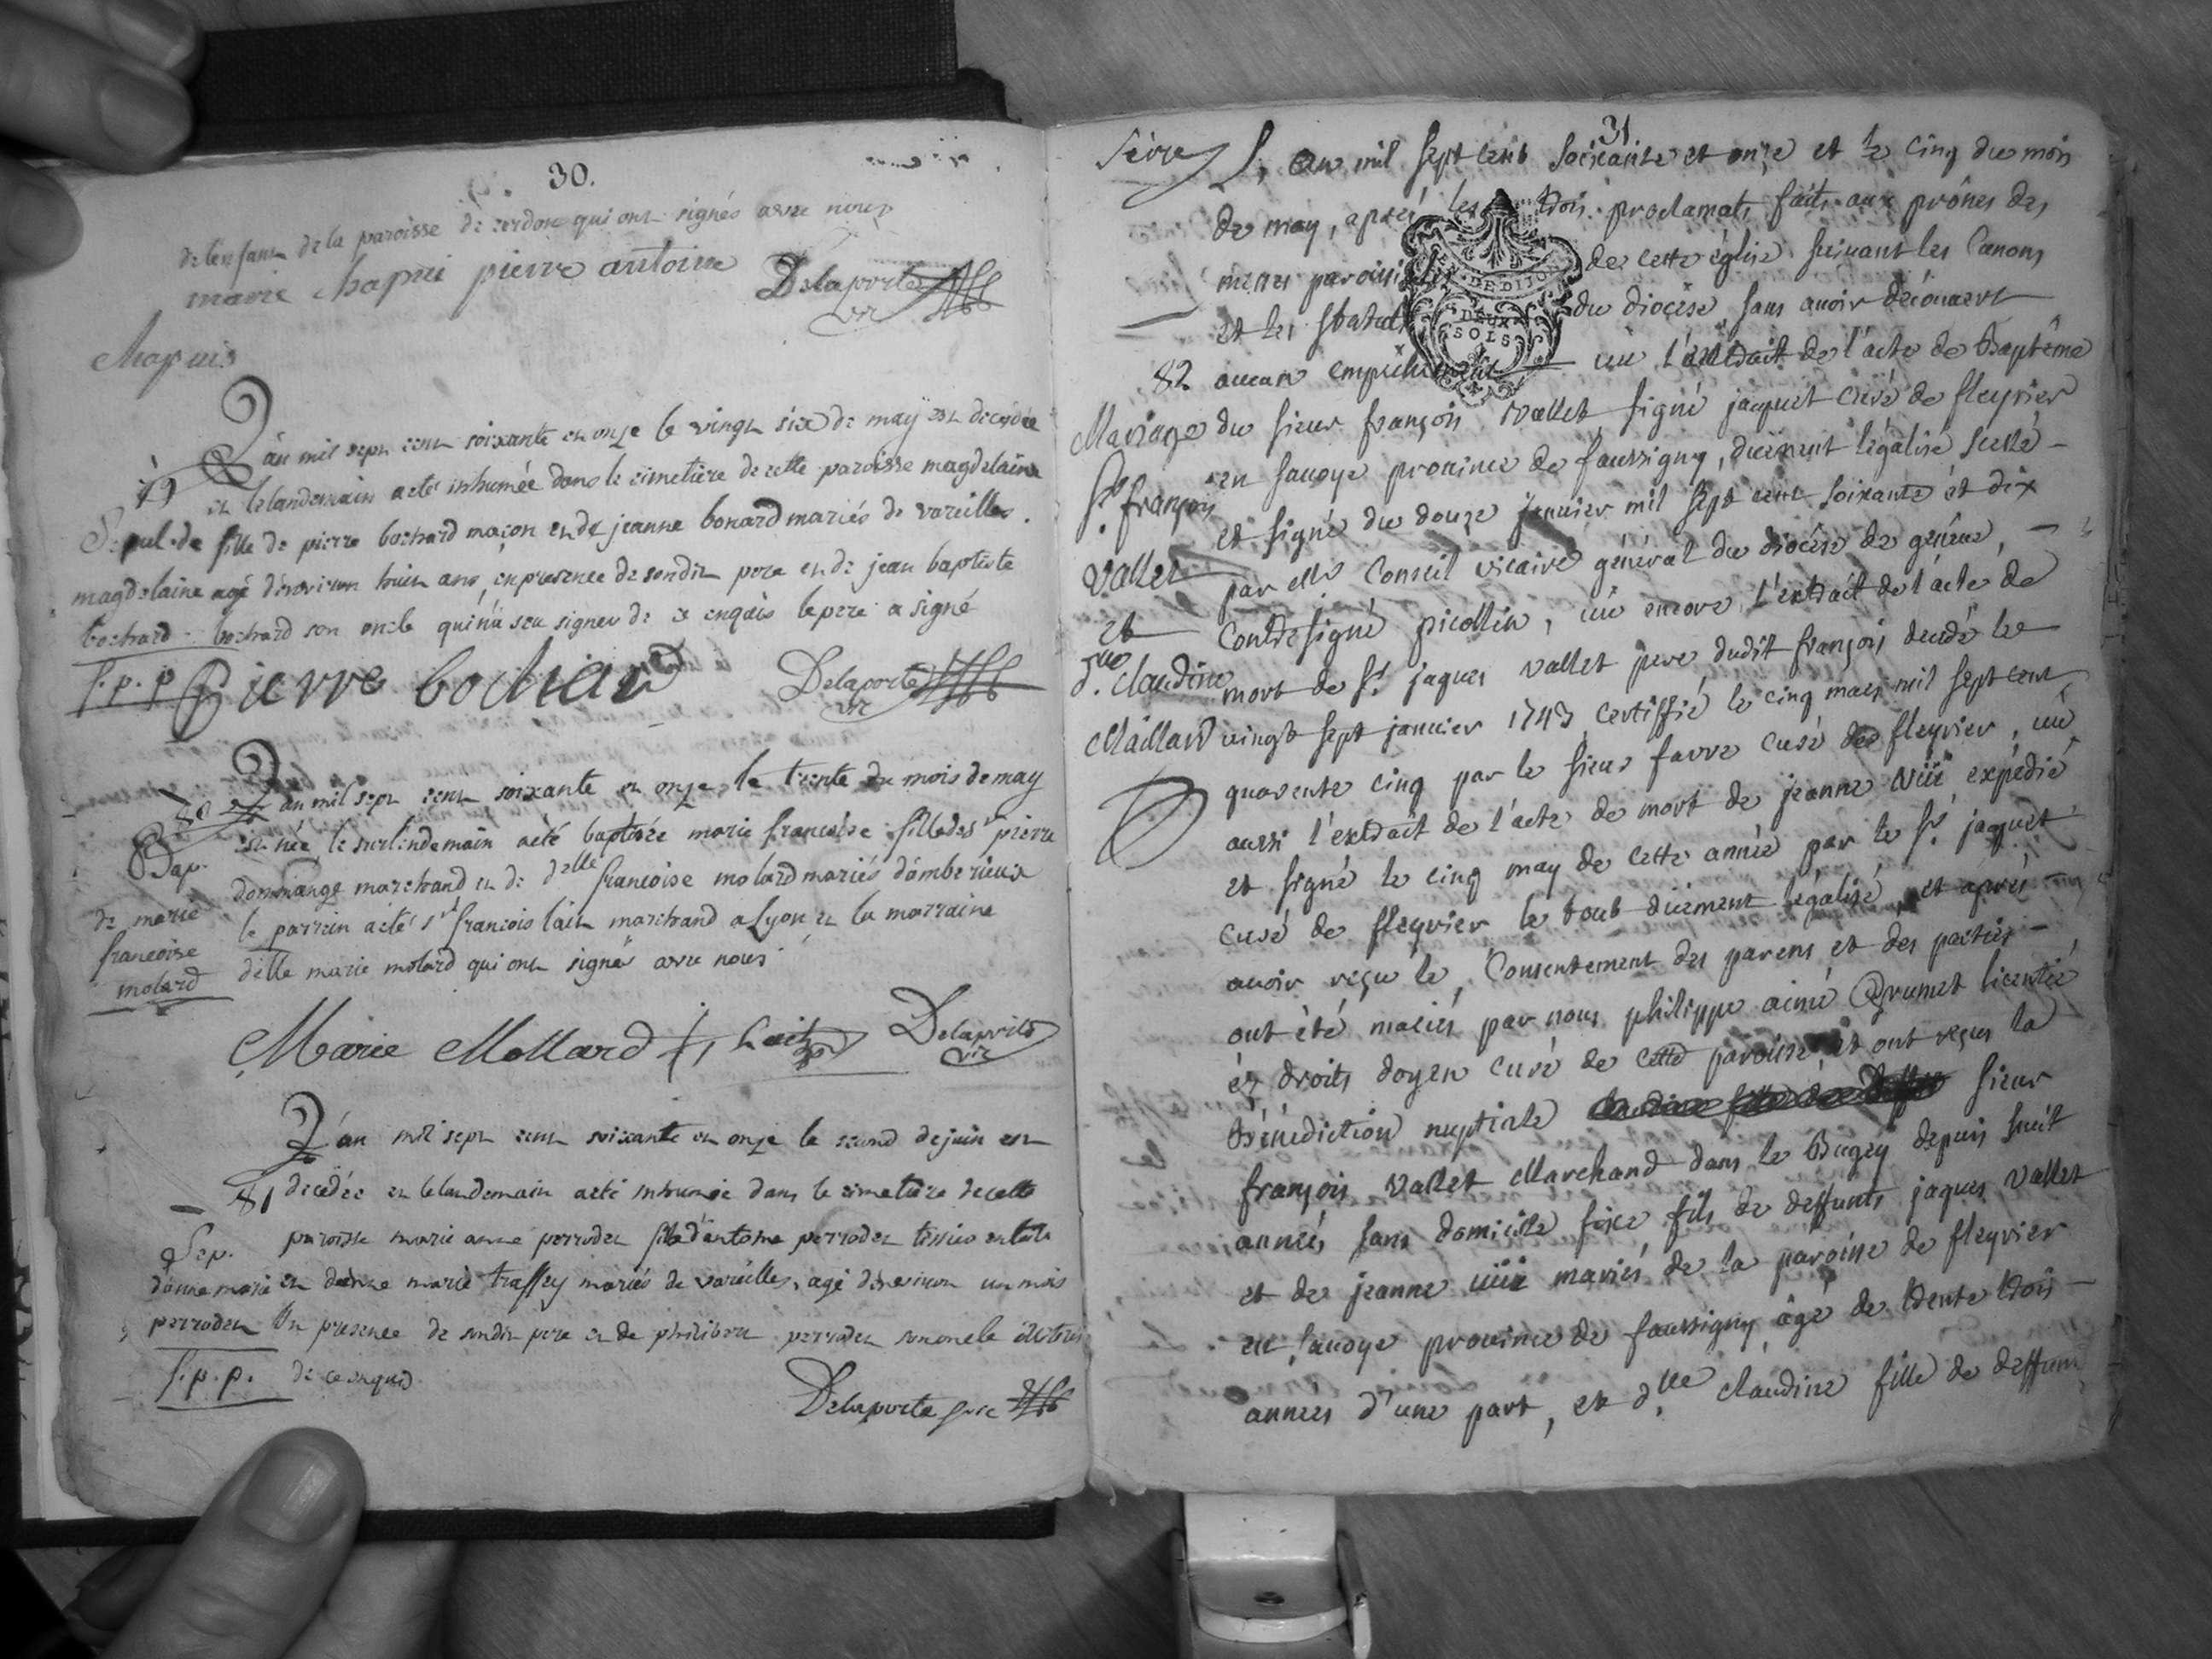 30.
de l'enfant de la paroisse de cerdon qui ont signés avec nous
marie chapui pierre antoine Delaporte
vic
chapuis
L'an mil sept cent soixante et onze le vingt six de may est decedée
79 et le landemain a eté inhumée dans le cimetière de cette paroisse magdelaine
Sepul. de fille de pierre bochard maçon et de jeanne bonard mariés de vareilles.
magdelaine agé d'environ huit ans, en presence de sondit pere et de jean baptiste
bochard bochard son oncle qui n'a seu signer de ce enquis le pere a signé
S.p.p Pierre bochard Delaporte
vic
80 L'an mil sept cent soixante et onze le trente du mois de may
Bap. est née, le surlendemain a eté baptisée marie francoise fille de sr pierre
dommange marchand et de delle francoise molard mariés d'amberieux
de marie le parrein a eté sr francois lait marchand a Lyon et la marraine
francoise delle marie molard qui ont signé avec nous
molard
Marie Mollard f, Lait Delaporte
vic
L'an mil sept cent soixante et onze le second de juin est
81 decedée et le landemain a eté inhumée dans le cimetière de cette
Sep. paroisse marie anne perrodet fille d'antoine perrodet
d'anne marie et d'anne marie traffey mariés de vareilles, agé d'environ un mois
perrodet En presence de sondit pere et de philibert perrodet son oncle illiterés
S.p.p. de ce enquis
Delaporte vic
31
L'an mil sept cent soixante et onze et le cinq du mois
de may, après les trois proclamats faits aux prônes des
messes paroissiales de cette église suivant les Canons
EN. DE DIJON
DEUX SOLS
et les statuts du diocèse, sans avoir découvert
82 aucun empêchement vû l'extrait de l'acte de Baptême
Mariage du sieur françois Vallet, signé jaquet curé de fleyrier
Sr. françois en savoye province de faussigny, duëment légalisé scellé
et signé du douze janvier mil sept cent soixante et dix
Vallet par Mr Conseil vicaire général du diocèse de genève,
et Contresigné picollin, vû encore l'extrait de l'acte de
dlle Claudine mort de Sr jaques Vallet pere dudit françois decédé le
Maillard vingt sept janvier 1743 certiffié le cinq mars mil sept cent
quarente cinq par le sieur favre curé de fleyrier, vû
aussi l'extrait de l'acte de mort de jeanne expédié
et signé le cinq may de cette année par le Sr. jaquet
curé de fleyrier le tout duëment légalisé, et après
avoir reçu le Consentement des parens et des parties
ont été mariés par nous philippe aimé Grumet licentié
ès droits doyen curé de cette paroisse, et ont reçus la
Bénédiction nuptiale sieur
françois Vallet Marchand dans le Bugey depuis huit
années sans domicille fixe fils de deffunts jaques Vallet
et de jeanne mariés de la paroisse de fleyrier
en savoye province de faussigny âgé de trente trois
années d'une part, et dlle claudine fille de deffunt